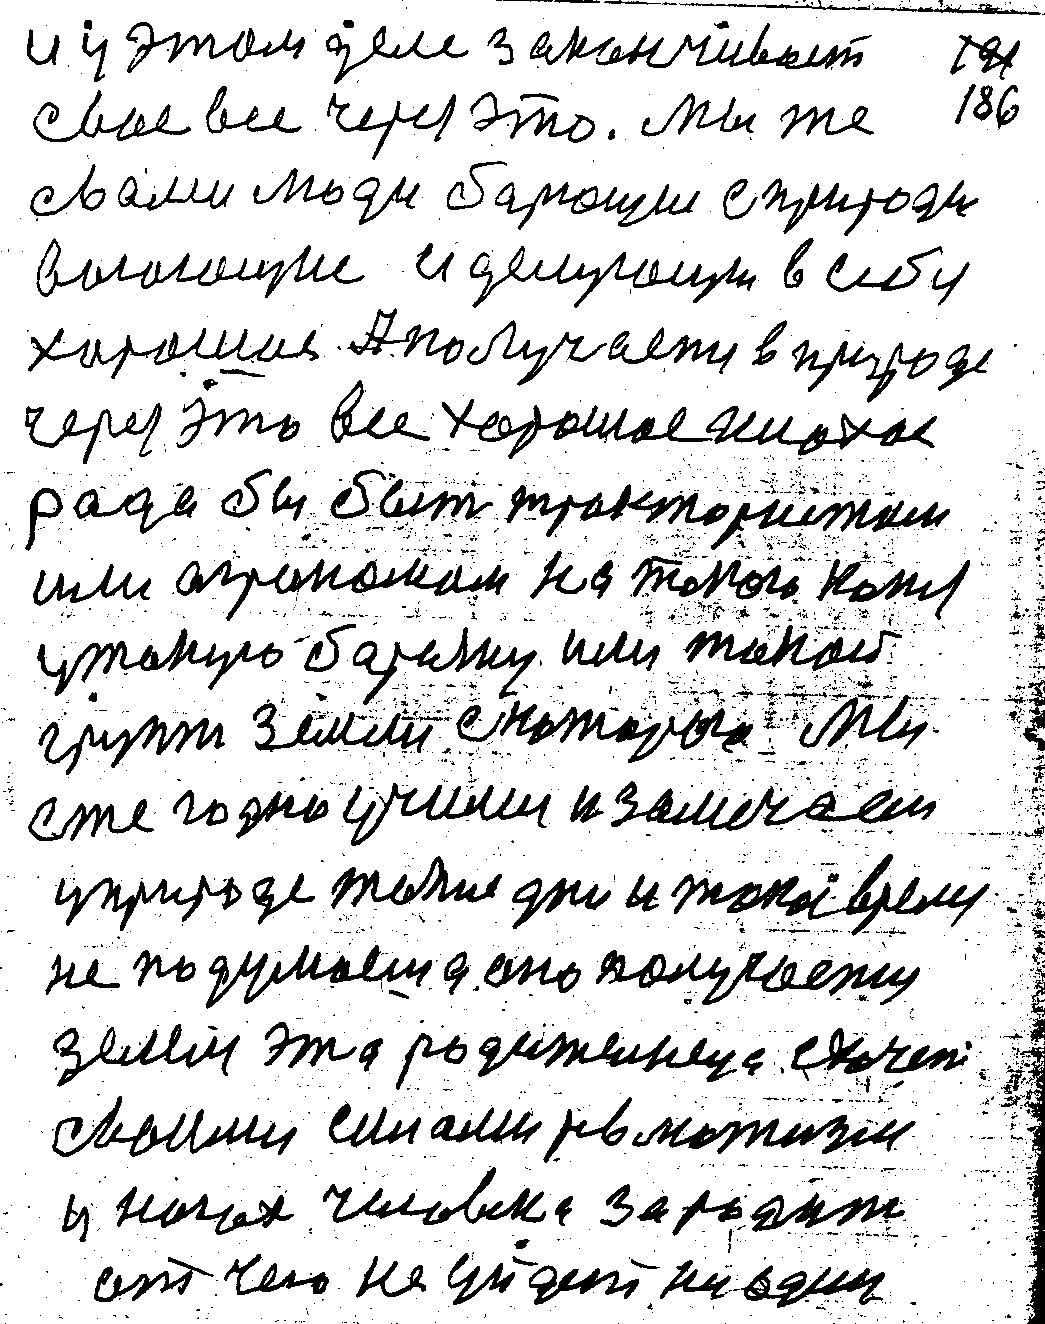 и у этом деле заканчивает
свое все через это. Мы же
свами люди барющие сприроди
воюющие и делующи в себу
хорошие А получаети в природе
через это все хорошае и плохое
рада бы быт трактористом
или агрономом на токого кони
утакую баражу или такой
групт земли скоторого Мы
сже годно учими и замечаем
уприроде такие дни и такой время
не подумоеш а оно получаети
земли эта родительнеца схочет
своими силами ревмотизм
у ногах человека зародит
от чего не уйдет ни один
186